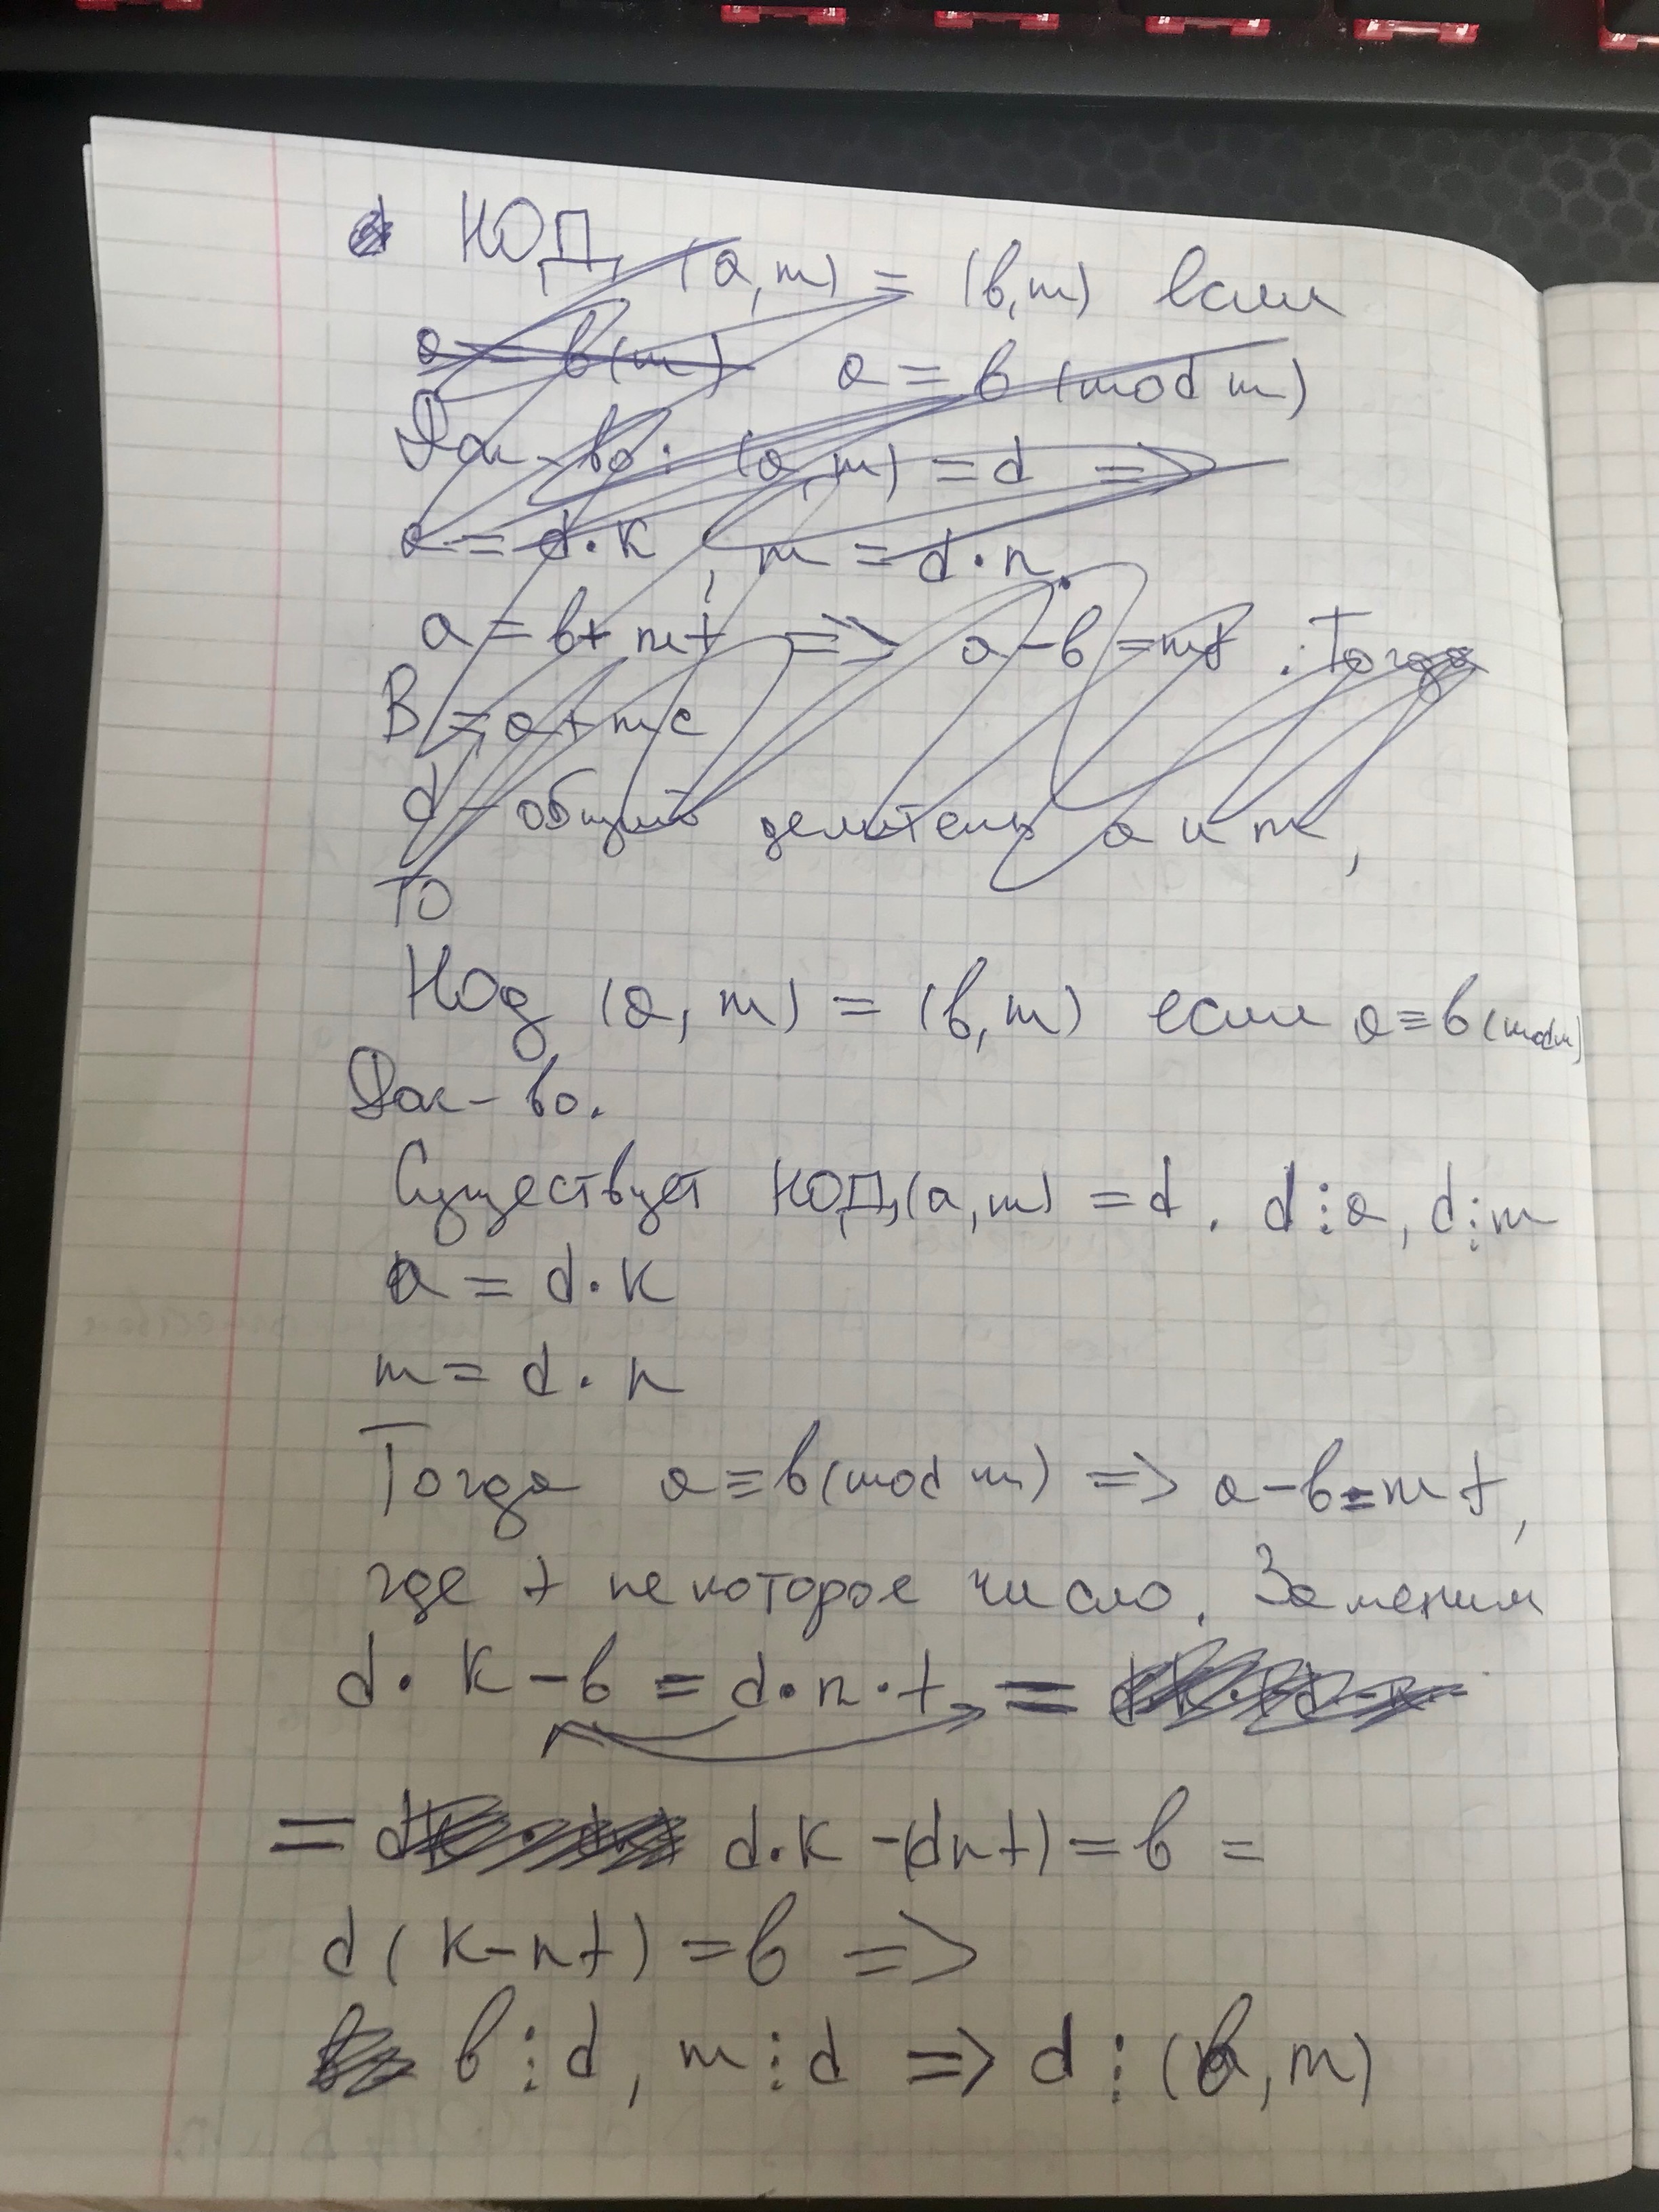 НОД (a,m) = (b,m) если
a = b(m) a = b (mod m)
Док-во: (a, m) = d =>
a = d·k, m = d·n.
a = b + mt => a-b = mt. Тогда
B = a + mc
d - общий делитель a и m,
то
НОд (a, m) = (b, m) если a≡b(mod m)
Док-во.
Существует НОД(a,m) = d. d⋮a, d⋮m
a = d·k
m = d·n
Тогда a≡b(mod m) => a-b=mt,
где t некоторое число. Заменим
d·k-b = d·n·t =
= d·k -(dnt) = b =
d(k-nt) = b =>
b⋮d, m⋮d => d⋮(b,m)